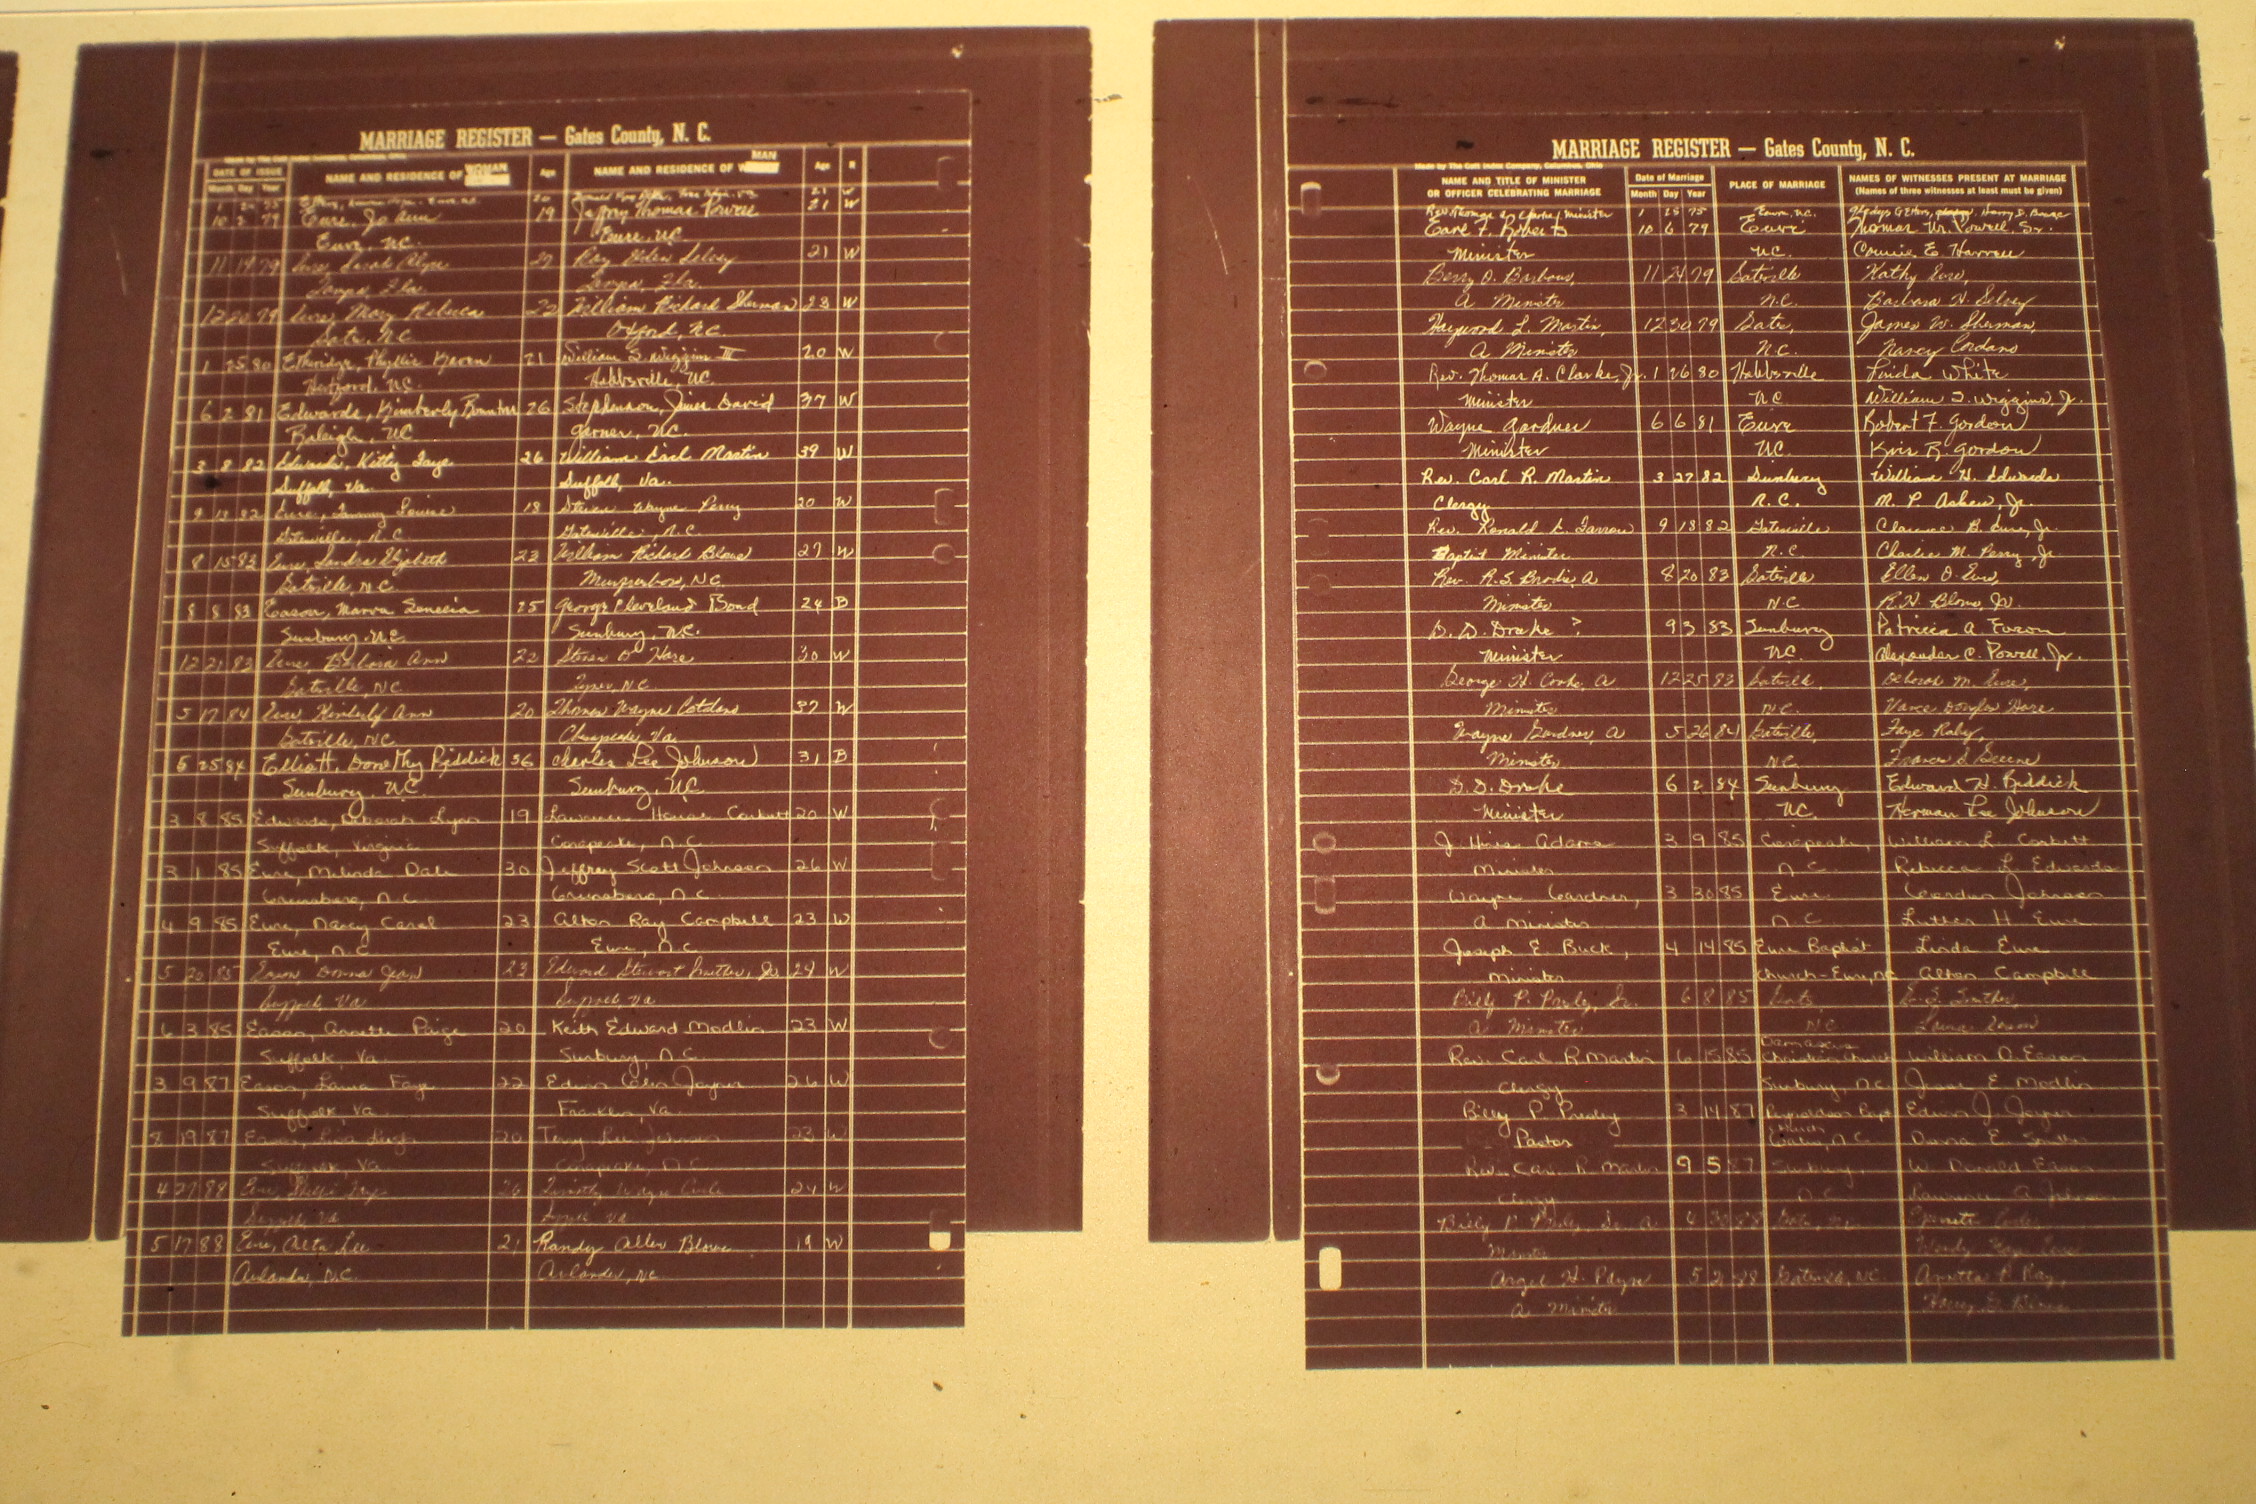 MARRIAGE REGISTER — Gates County, N. C.
Made by The Cott Index Company, Columbus, Ohio
DATE OF ISSUE
Month Day Year
NAME AND RESIDENCE OF WOMAN
Age
NAME AND RESIDENCE OF MAN
Age
R
21 W
10 3 79 Eure, Jo Ann 19 Jeffrey Thomas Powell 21 W
Eure, NC. Eure, NC
11 19 79 Eure, Sarah 27 Ray Selvey 21 W
Tampa, Fla. Tampa, Fla.
12 20 79 Eure, Mary Rebecca 22 William Richard Sherman 23 W
Gates, NC Oxford, NC
1 25 80 Etheridge, Phyllis Karen 21 William S. Wiggins III 20 W
Hertford, NC. Hobbsville, NC.
6 2 81 Edwards, Kimberly 26 Stephenson, James David 37 W
Raleigh, NC Garner, NC.
3 8 82 Edwards, Kitty Faye 26 William Earl Martin 39 W
Suffolk, Va. Suffolk, Va.
9 13 82 Eure, Tammy Louise 18 Steven Wayne Perry 20 W
Gatesville, N.C. Gatesville, N.C
8 15 83 Eure, Sandra Elizabeth 23 William Richard Blowe 27 W
Gatesville, N.C. Murfreesboro, NC
8 8 83 Eason, Marva 25 George Cleveland Bond 24 B
Sunbury, NC. Sunbury, NC.
12 21 83 Eure, Barbara Ann 22 Steven D. Hare 30 W
Gatesville, NC Tyner, NC
5 17 84 Eure, Kimberly Ann 20 Thomas Wayne 37 W
Gatesville, NC Chesapeake Va.
5 25 84 Elliott, Dorothy Riddick 36 Charles Lee Johnson 31 B
Sunbury, NC Sunbury, NC
3 8 85 Edwards, Deborah Lynn 19 Lawrence House Corbett 20 W
Suffolk, Virginia Corapeake, N.C.
3 1 85 Eure, Melinda Dale 30 Jeffrey Scott Johnson 26 W
Greensboro, N.C. Greensboro, N.C
4 9 85 Eure, Nancy Carol 23 Alton Ray Campbell 23 W
Eure, N.C Eure, N.C
5 20 85 Eason, Donna Jean 23 Edward Stewart Jr. 24 W
Suffolk, Va Suffolk, Va
6 3 85 Eason, Annette Paige 20 Keith Edward Modlin 23 W
Suffolk, Va. Sunbury, N.C.
3 9 87 Eason, Laura Faye 22 Edwin Joyner 26 W
Suffolk, Va. Franklin, Va.
8 19 87 Eason, Lisa 20 Terry Lee Johnson 23 W
Suffolk, Va Corapeake, N.C
4 27 88 Eure, Faye 26 Timothy Wayne 24 W
Suffolk, Va
5 17 88 Eure, Alta Lee 21 Randy Allen Blowe 19 W
Aulander, N.C. Aulander, NC
MARRIAGE REGISTER — Gates County, N. C.
Made by The Cott Index Company, Columbus, Ohio
NAME AND TITLE OF MINISTER
OR OFFICER CELEBRATING MARRIAGE
Date of Marriage
Month Day Year
PLACE OF MARRIAGE
NAMES OF WITNESSES PRESENT AT MARRIAGE
(Names of three witnesses at least must be given)
Minister 1 25 75 Eure, N.C.
Earl F. Roberts 10 6 79 Eure Thomas W. Powell, Sr.
Minister NC. Connie E. Harrell
Berry O. Barbour, 11 24 79 Gatesville Kathy Eure,
A Minister N.C. Barbara H. Selvey
Haywood L. Martin, 12 30 79 Gates, James W. Sherman,
A Minister N.C. Nancy Cordano
Rev. Thomas A. Clarke, Jr. 1 26 80 Hobbsville Linda White
Minister NC William S. Wiggins, Jr.
Wayne Gardner 6 6 81 Eure Robert F. Gordon
Minister NC. Kris R. Gordon
Rev. Carl R. Martin 3 27 82 Sunbury William H. Edwards
Clergy N.C. M. P. Askew, Jr.
Rev. Ronald L. Farrow 9 18 82 Gatesville Clarence B. Eure, Jr.
Baptist Minister N.C Charlie M. Perry, Jr.
Rev. R.S. Brodie, A 8 20 83 Gatesville Ellen O. Eure,
Minister N.C R.H. Blowe, Jr.
D. D. Drake ? 9 3 83 Sunbury Patricia A.
Minister NC. Alexander C. Powell, Jr.
George H. Cooke, A 12 25 83 Gatesville, Deborah M. Eure,
Minister N.C. Vance Douglas Hare
Wayne Gardner, A 5 26 84 Gatesville, Faye Raby,
Minister NC Frances S. Greene
D. D. Drake 6 2 84 Sunbury Edward H. Riddick
Minister NC. Herman Lee Johnson
J. Hines Adams 3 9 85 Corapeake, William L. Corbett
Minister N.C. Rebecca L. Edwards
Wayne Gardner, 3 30 85 Eure Gordon Johnson
A Minister N.C Luther H. Eure
Joseph E. Buck, 4 14 85 Eure Baptist Linda Eure
Minister Church-Eure, NC Alton Campbell
Billy P. Presley, Sr. 6 8 85 Gates
A Minister NC
Damascus
Rev. Carl R Martin 6 15 85 Christian Church William D. Eason
Clergy Sunbury, N.C. Jesse E. Modlin
Billy P. Presley 3 14 87 Reynoldson Bapt. Edwin J. Joyner
Church
Pastor Gates, N.C. Donna E.
Rev. Carl R. Martin 9 5 87 Sunbury, W. Donald Eason
Clergy N.C. Lawrence A. Johnson
Billy P. Presley, Sr. A 4 30 88 Gates, NC
Minister Wendy Faye Eure
Angel H. Payne 5 21 88 Gatesville, NC Annette P. Ray,
A Minister